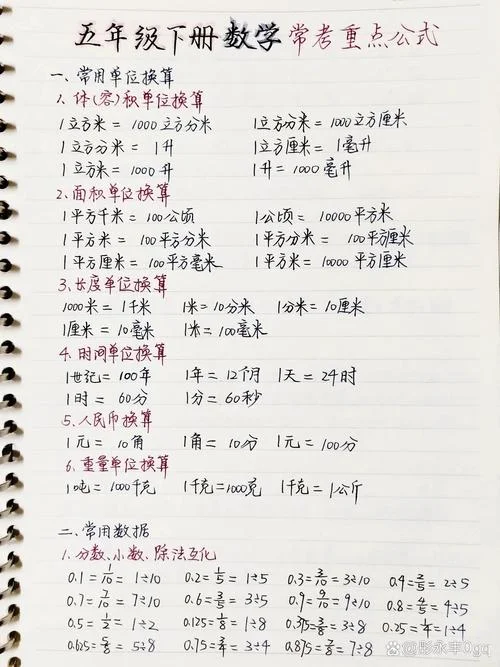 五年级下册数学常考重点公式
一、常用单位换算
1.体(容)积单位换算
1立方米=1000立方分米 1立方分米=1000立方厘米
1立方分米=1升 1立方厘米=1毫升
1立方米=1000升 1升=1000毫升
2.面积单位换算
1平方千米=100公顷 1公顷=10000平方米
1平方米=100平方分米 1平方分米=100平方厘米
1平方厘米=100平方毫米 1平方米=10000平方厘米
3.长度单位换算
1000米=1千米 1米=10分米 1分米=10厘米
1厘米=10毫米 1米=100毫米
4.时间单位换算
1世纪=100年 1年=12个月 1天=24时
1时=60分 1分=60秒
5.人民币换算
1元=10角 1角=10分 1元=100分
6.重量单位换算
1吨=1000千克 1千克=1000克 1千克=1公斤
二、常用数据
1.分数、小数、除法互化
0.1=1/10=1÷10 0.2=1/5=1÷5 0.3=3/10=3÷10 0.4=2/5=2÷5
0.7=7/10=7÷10 0.6=3/5=3÷5 0.9=9/10=9÷10 0.8=4/5=4÷5
0.5=1/2=1÷2 0.125=1/8=1÷8 0.375=3/8=3÷8 0.25=1/4=1÷4
0.625=5/8=5÷8 0.75=3/4=3÷4 0.875=7/8=7÷8